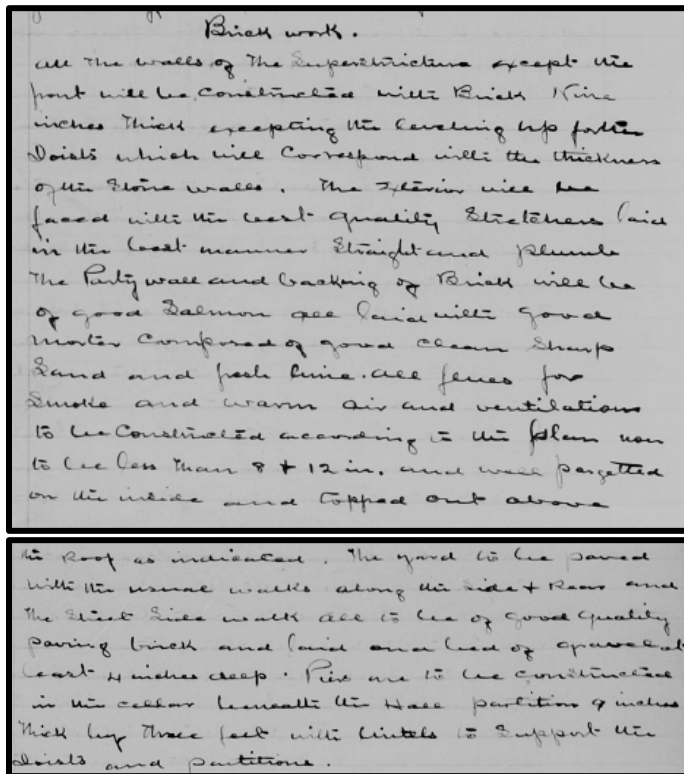 Brick work.
All the walls of the Superstructure except the
front will be Constructed with Brick Nine
inches Thick excepting the leveling up for the
Joists which will Correspond with the thickness
of the Stone walls. The Exterior will be
faced with the best quality Stretchers laid
in the best manner Straight and plumb
The Party wall and backing of Brick will be
of good Salmon all laid with good
morter Composed of good clean Sharp
Sand and fresh lime. all flues for
Smoke and warm air and ventilations
to be Constructed according to the plan non
to be less than 8 + 12 in. and well pargetted
on the inside and topped out above
the Roof as indicated. The yard to be paved
with the usual walks along the side + Rear and
The Street Side walk all to be of good quality
paving brick and laid on a bed of gravel at
least 4 inches deep. Pier are to be constructed
in the cellar beneath the Hall partition 9 inches
Thick by Three feet with lintels to Support the
Joists and partitions.